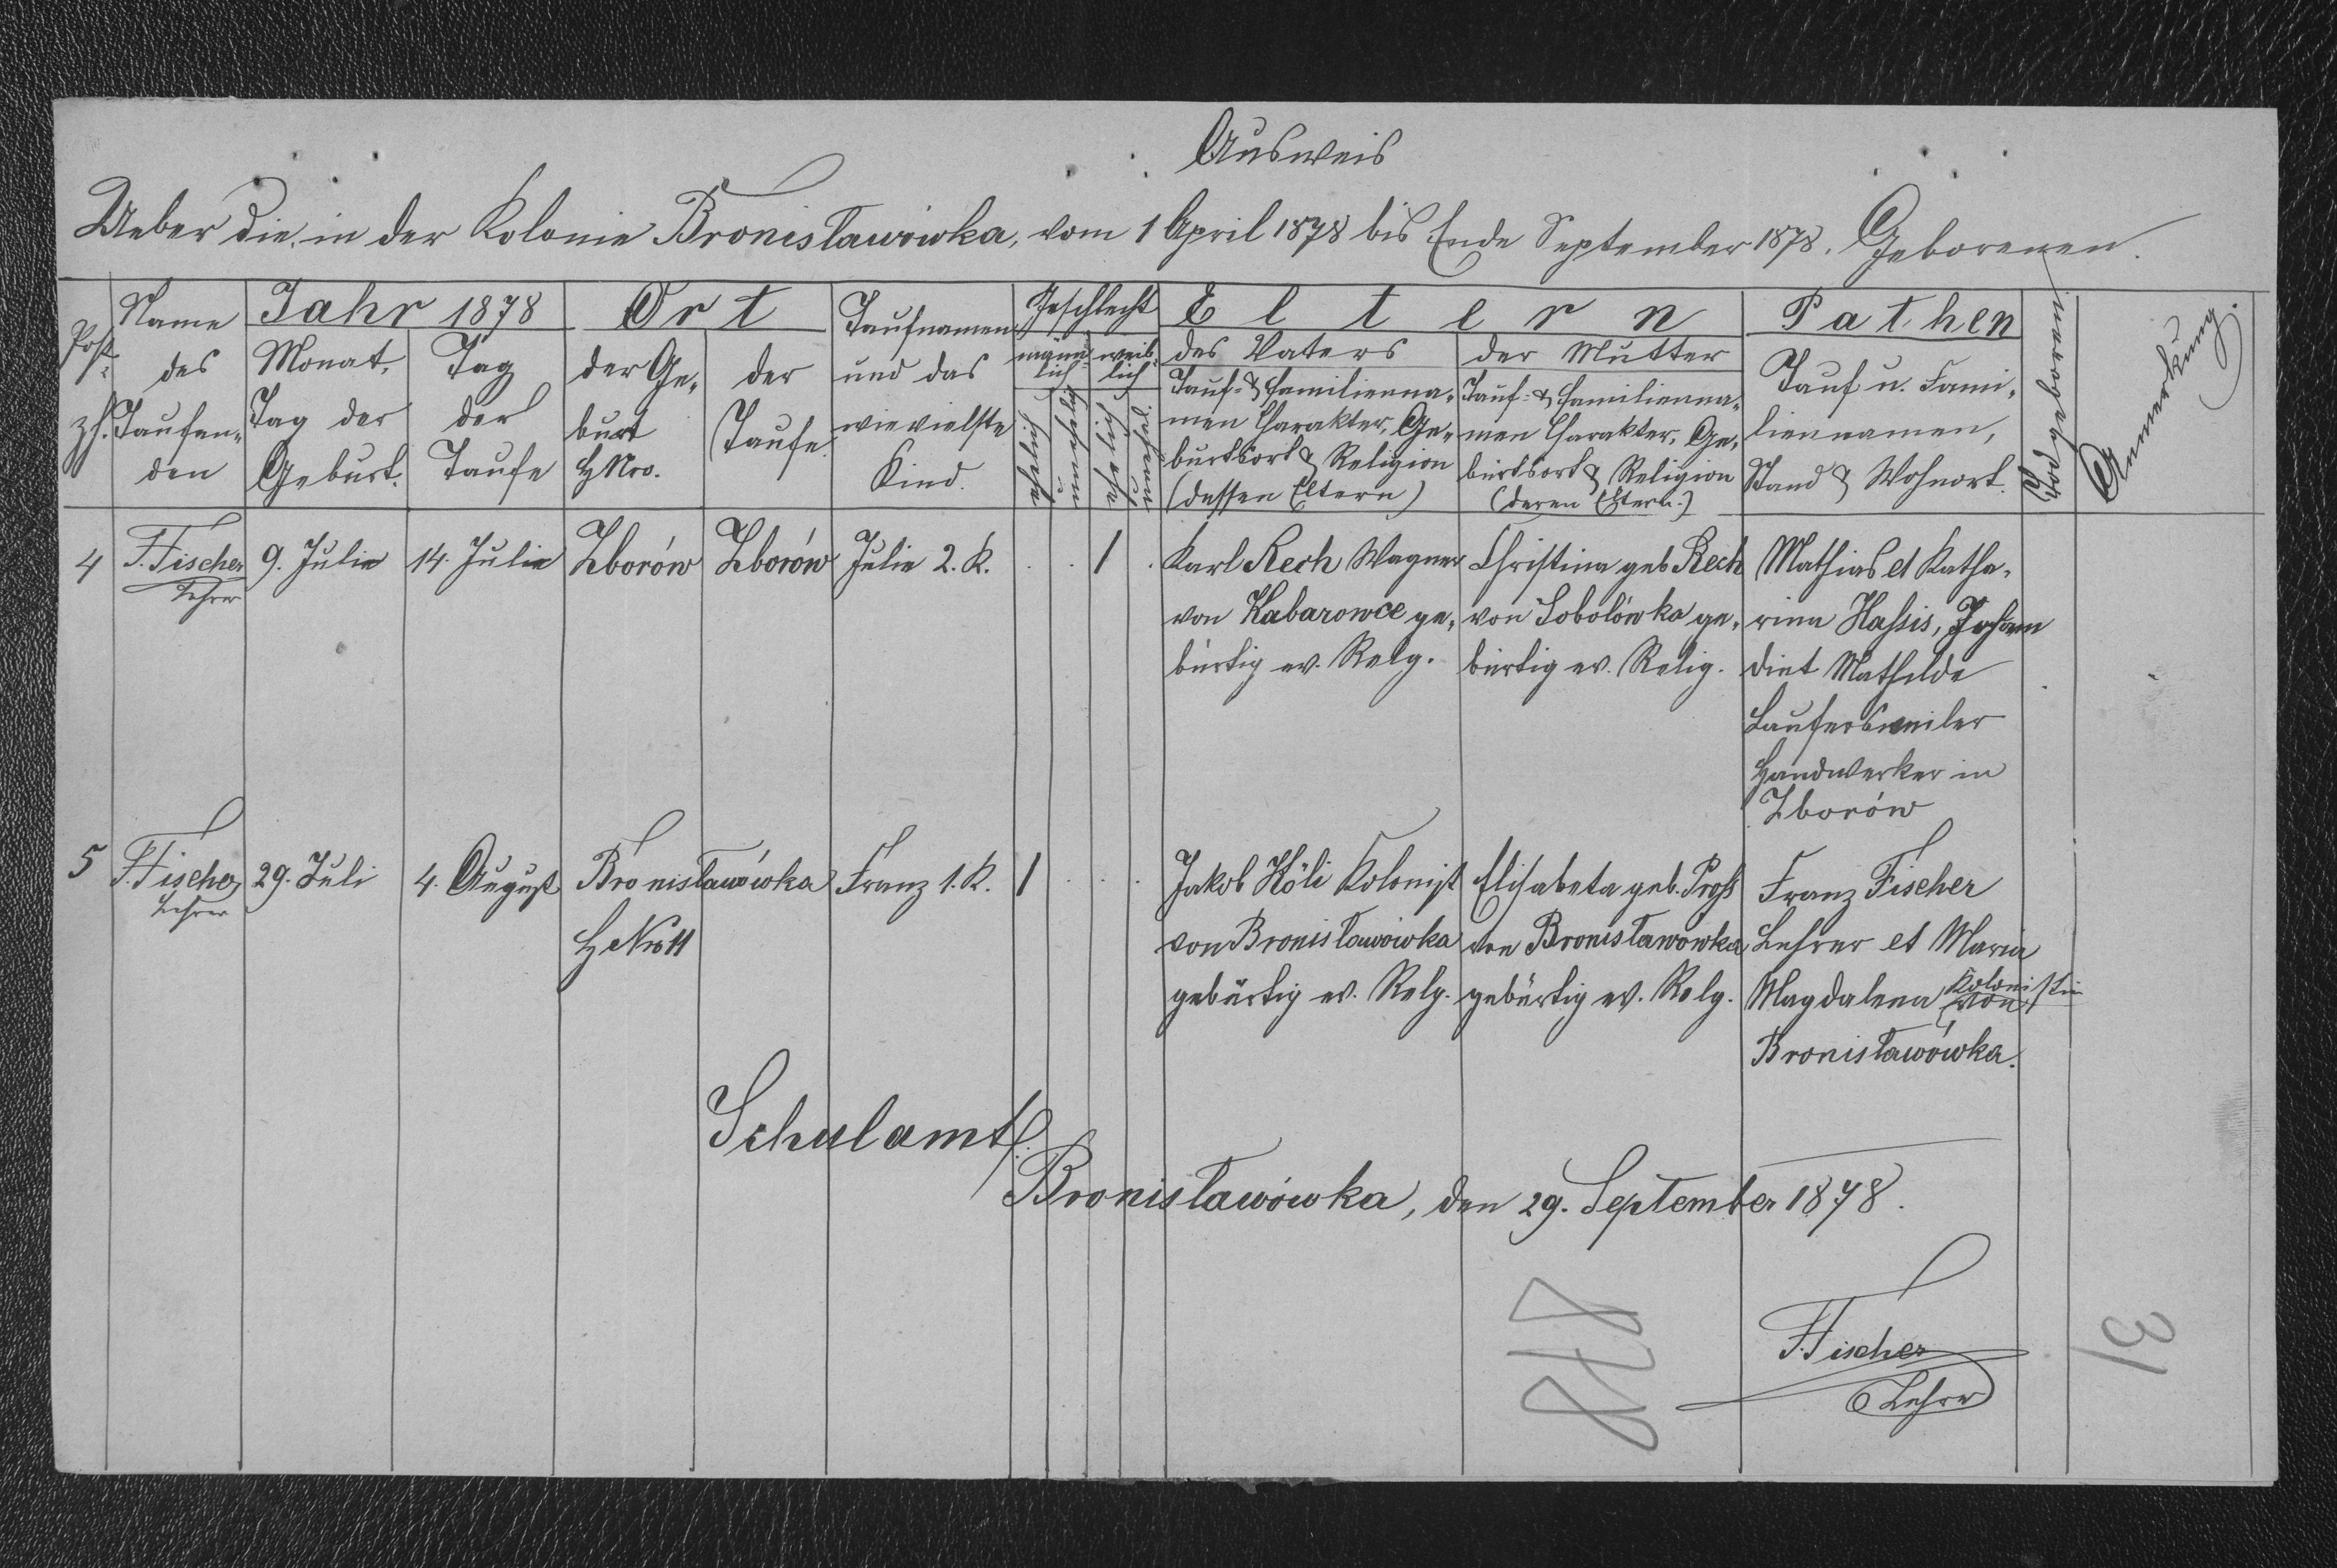 Ausweis
Ueber die in der Kolonie Bronisławówka, vom 1 April 1878 bis Ende September 1878. Geborenen.
Post-
zh.
Name
des
Taufen-
den
Jahr 1878
Monat,
Tag der
Geburt.
Tag
der
Taufe
Ort
der Ge-
burt
HNro.
der
Taufe.
Taufnamen
und das
wievielste
Kind.
Geschlecht
männ-
lich
weib-
lich
ehelich
unehelich
ehelich
unehelich
Eltern
des Vaters
Tauf- & Familienna-
men Charakter, Ge-
burtsort & Religion
(dessen Eltern)
der Mutter
Tauf- & Familienna-
men Charakter, Ge-
burtsort & Religion
(deren Eltern.)
Pathen
Tauf u. Fami-
liennamen,
Stand & Wohnort.
Todtgeboren
Anmerkung.
4
F. Fischer
Lehrer
9. Julie
14. Julie
Zborów
Zborów
Julie 2. K.
1
Karl Rech Wagner
von Kabarowce ge-
bürtig ev. Relg.
Christina geb Rech
von Sobolówka ge-
bürtig ev. Relig.
Mathias et Katha-
rina Hassis, Johann
Mathilde
Laufersweiler
Handwerker in
Zborów
5
F. Fischer
Lehrer
29. Juli
4. August
Bronisławówka
HNro 11
Franz 1. K.
1
Jakob Höli Kolonist
von Bronisławówka
gebürtig ev. Relg.
Elisabeta geb. Pross
von Bronisławowka
gebürtig ev. Relg.
Franz Fischer
Lehrer et Maria
Magdalena Kolonistin
von
Bronisławówka.
Schulamt
Bronisławówka, den 29. September 1878.
F. Fischer
Lehrer
878
31